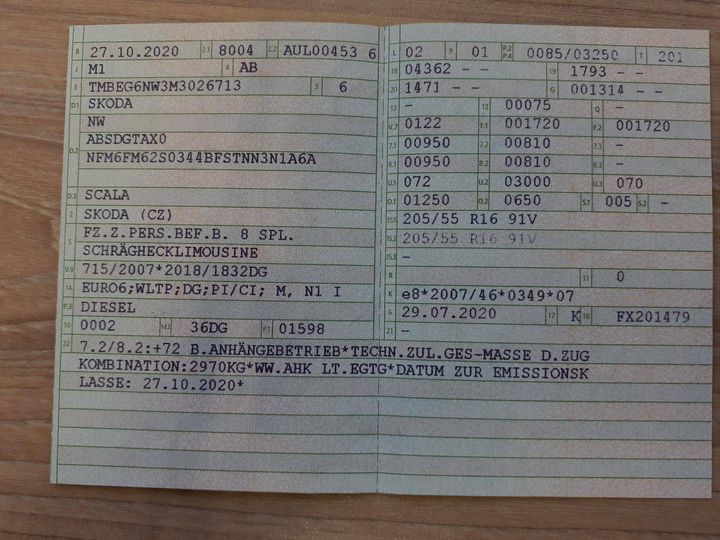 B 27.10.2020 2.1 8004 2.2 AUL00453 6
J M1 4 AB
E TMBEG6NW3M3026713 3 6
D.1 SKODA
NW
D.2 ABSDGTAX0
NFM6FM62S0344BFSTNN3N1A6A
D.3 SCALA
2 SKODA (CZ)
5 FZ.Z.PERS.BEF.B. 8 SPL.
SCHRÄGHECKLIMOUSINE
V.9 715/2007*2018/1832DG
14 EURO6;WLTP;DG;PI/CI; M, N1 I
P.3 DIESEL
10 0002 14.1 36DG P.1 01598
L 02 9 01 P.2 P.4 0085/03250 T 201
18 04362 - - 19 1793 - -
20 1471 - - G 001314 - -
12 - 13 00075 Q -
V.7 0122 F.1 001720 F.2 001720
7.1 00950 7.2 00810 7.3 -
8.1 00950 8.2 00810 8.3 -
U.1 072 U.2 03000 U.3 070
O.1 01250 O.2 0650 S.1 005 S.2 -
15.1 205/55 R16 91V
15.2 205/55 R16 91V
15.3 -
R 11 0
K e8*2007/46*0349*07
6 29.07.2020 17 K 16 FX201479
21 -
22 7.2/8.2:+72 B.ANHÄNGEBETRIEB*TECHN.ZUL.GES-MASSE D.ZUG
KOMBINATION:2970KG*WW.AHK LT.EGTG*DATUM ZUR EMISSIONSK
LASSE: 27.10.2020*